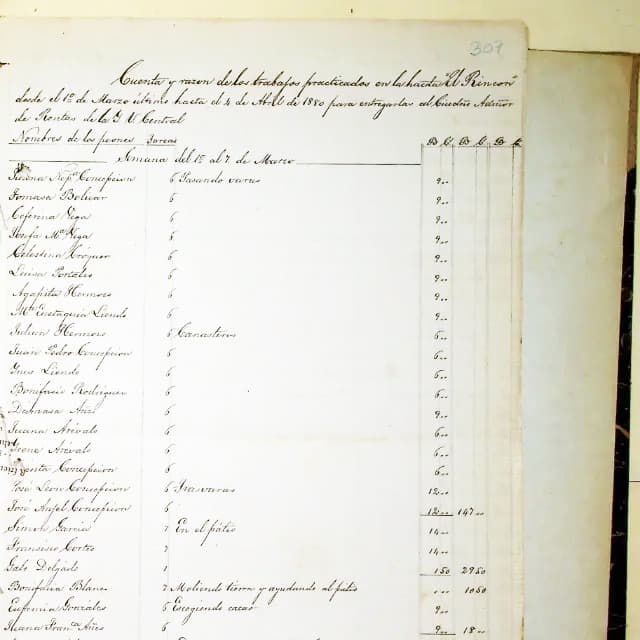 307
Cuenta y razon de los trabajos practicados en la hacda "El Rincon"
desde el 1º de Marzo último hasta el 4 de Abril de 1880 para entregarlas al
de Rentas de la G V Central
Nombres de los peones Tareas
Semana del 1º al 7 de Marzo
Concepcion 6 Pasando varas 9..
Tomasa Bolivar 6 9..
Ceferina Vega 6 9..
Mª Vega 6 9..
Celestina 6 9..
Luisa 6 9..
Agapita Hermoso 6 9..
Mª Eustaquia Liendo 6 9..
Julian Hermoso 6 Canasteros 6..
Juan Pedro Concepcion 6 6..
Ynes Liendo 6 6..
Bonifacio Rodriguez 6 6..
Damasa Añes 6 9..
Juana Arévalo 6 6..
Arévalo 6 6..
Concepcion 6 6..
José Leon Concepcion 6 12..
José Anjel Concepcion 6 12.. 147..
Simon Garcia 7 En el pátio 14..
Fransisco Cortes 7 14..
Delgado 1 1 50 29 50
Bonifacia Blanco 7 Moliendo tierra y ayudando al pátio 10 50
Eufemia Gonzales 6 Escogiendo cacao 9..
Juana Franca Añes 6 9.. 18..